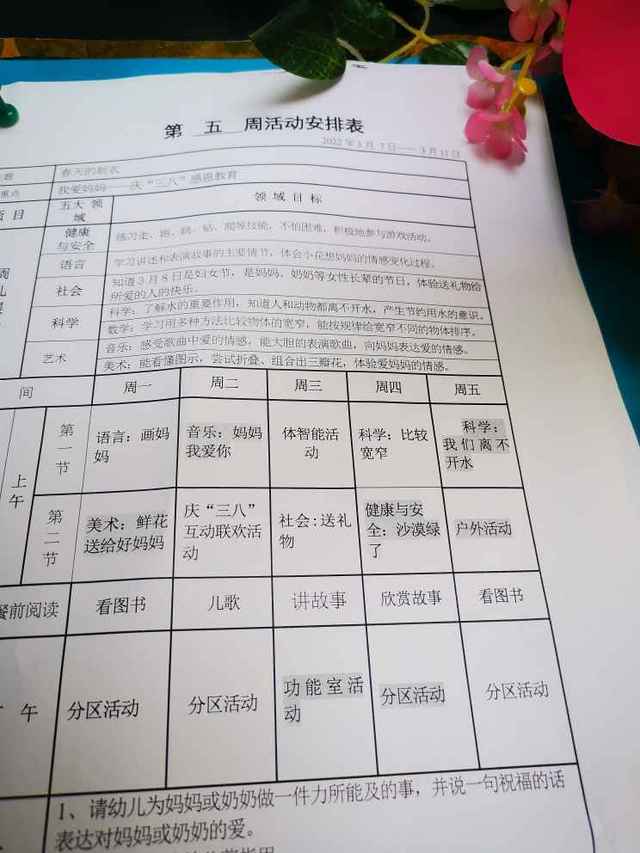 第 五 周活动安排表
2022年3月7日——3月11日
题
春天的朋友
重点
我爱妈妈——庆“三八”感恩教育
项目
五大领域
领域目标
健康与安全
练习走、跑、跳、钻、爬等技能，不怕困难，积极地参与游戏活动。
语言
学习讲述和表演故事的主要情节，体会小花想妈妈的情感变化过程。
社会
知道3月8日是妇女节，是妈妈、奶奶等女性长辈的节日，体验送礼物给
所爱的人的快乐。
科学
科学：了解水的重要作用，知道人和动物都离不开水，产生节约用水的意识。
数学：学习用多种方法比较物体的宽窄，能按规律给宽窄不同的物体排序。
艺术
音乐：感受歌曲中爱的情感，能大胆的表演歌曲，向妈妈表达爱的情感。
美术：能看像图示，尝试折叠、组合出三瓣花，体验爱妈妈的情感。
间
周一
周二
周三
周四
周五
上午
第一节
语言：画妈
妈
音乐：妈妈
我爱你
体智能活
动
科学：比较
宽窄
科学：
我们离不
开水
第二节
美术：鲜花
送给好妈妈
庆“三八”
互动联欢活
动
社会:送礼
物
健康与安
全：沙漠绿
了
户外活动
餐前阅读
看图书
儿歌
讲故事
欣赏故事
看图书
午
分区活动
分区活动
功能室活
动
分区活动
分区活动
1、请幼儿为妈妈或奶奶做一件力所能及的事，并说一句祝福的话
表达对妈妈或奶奶的爱。